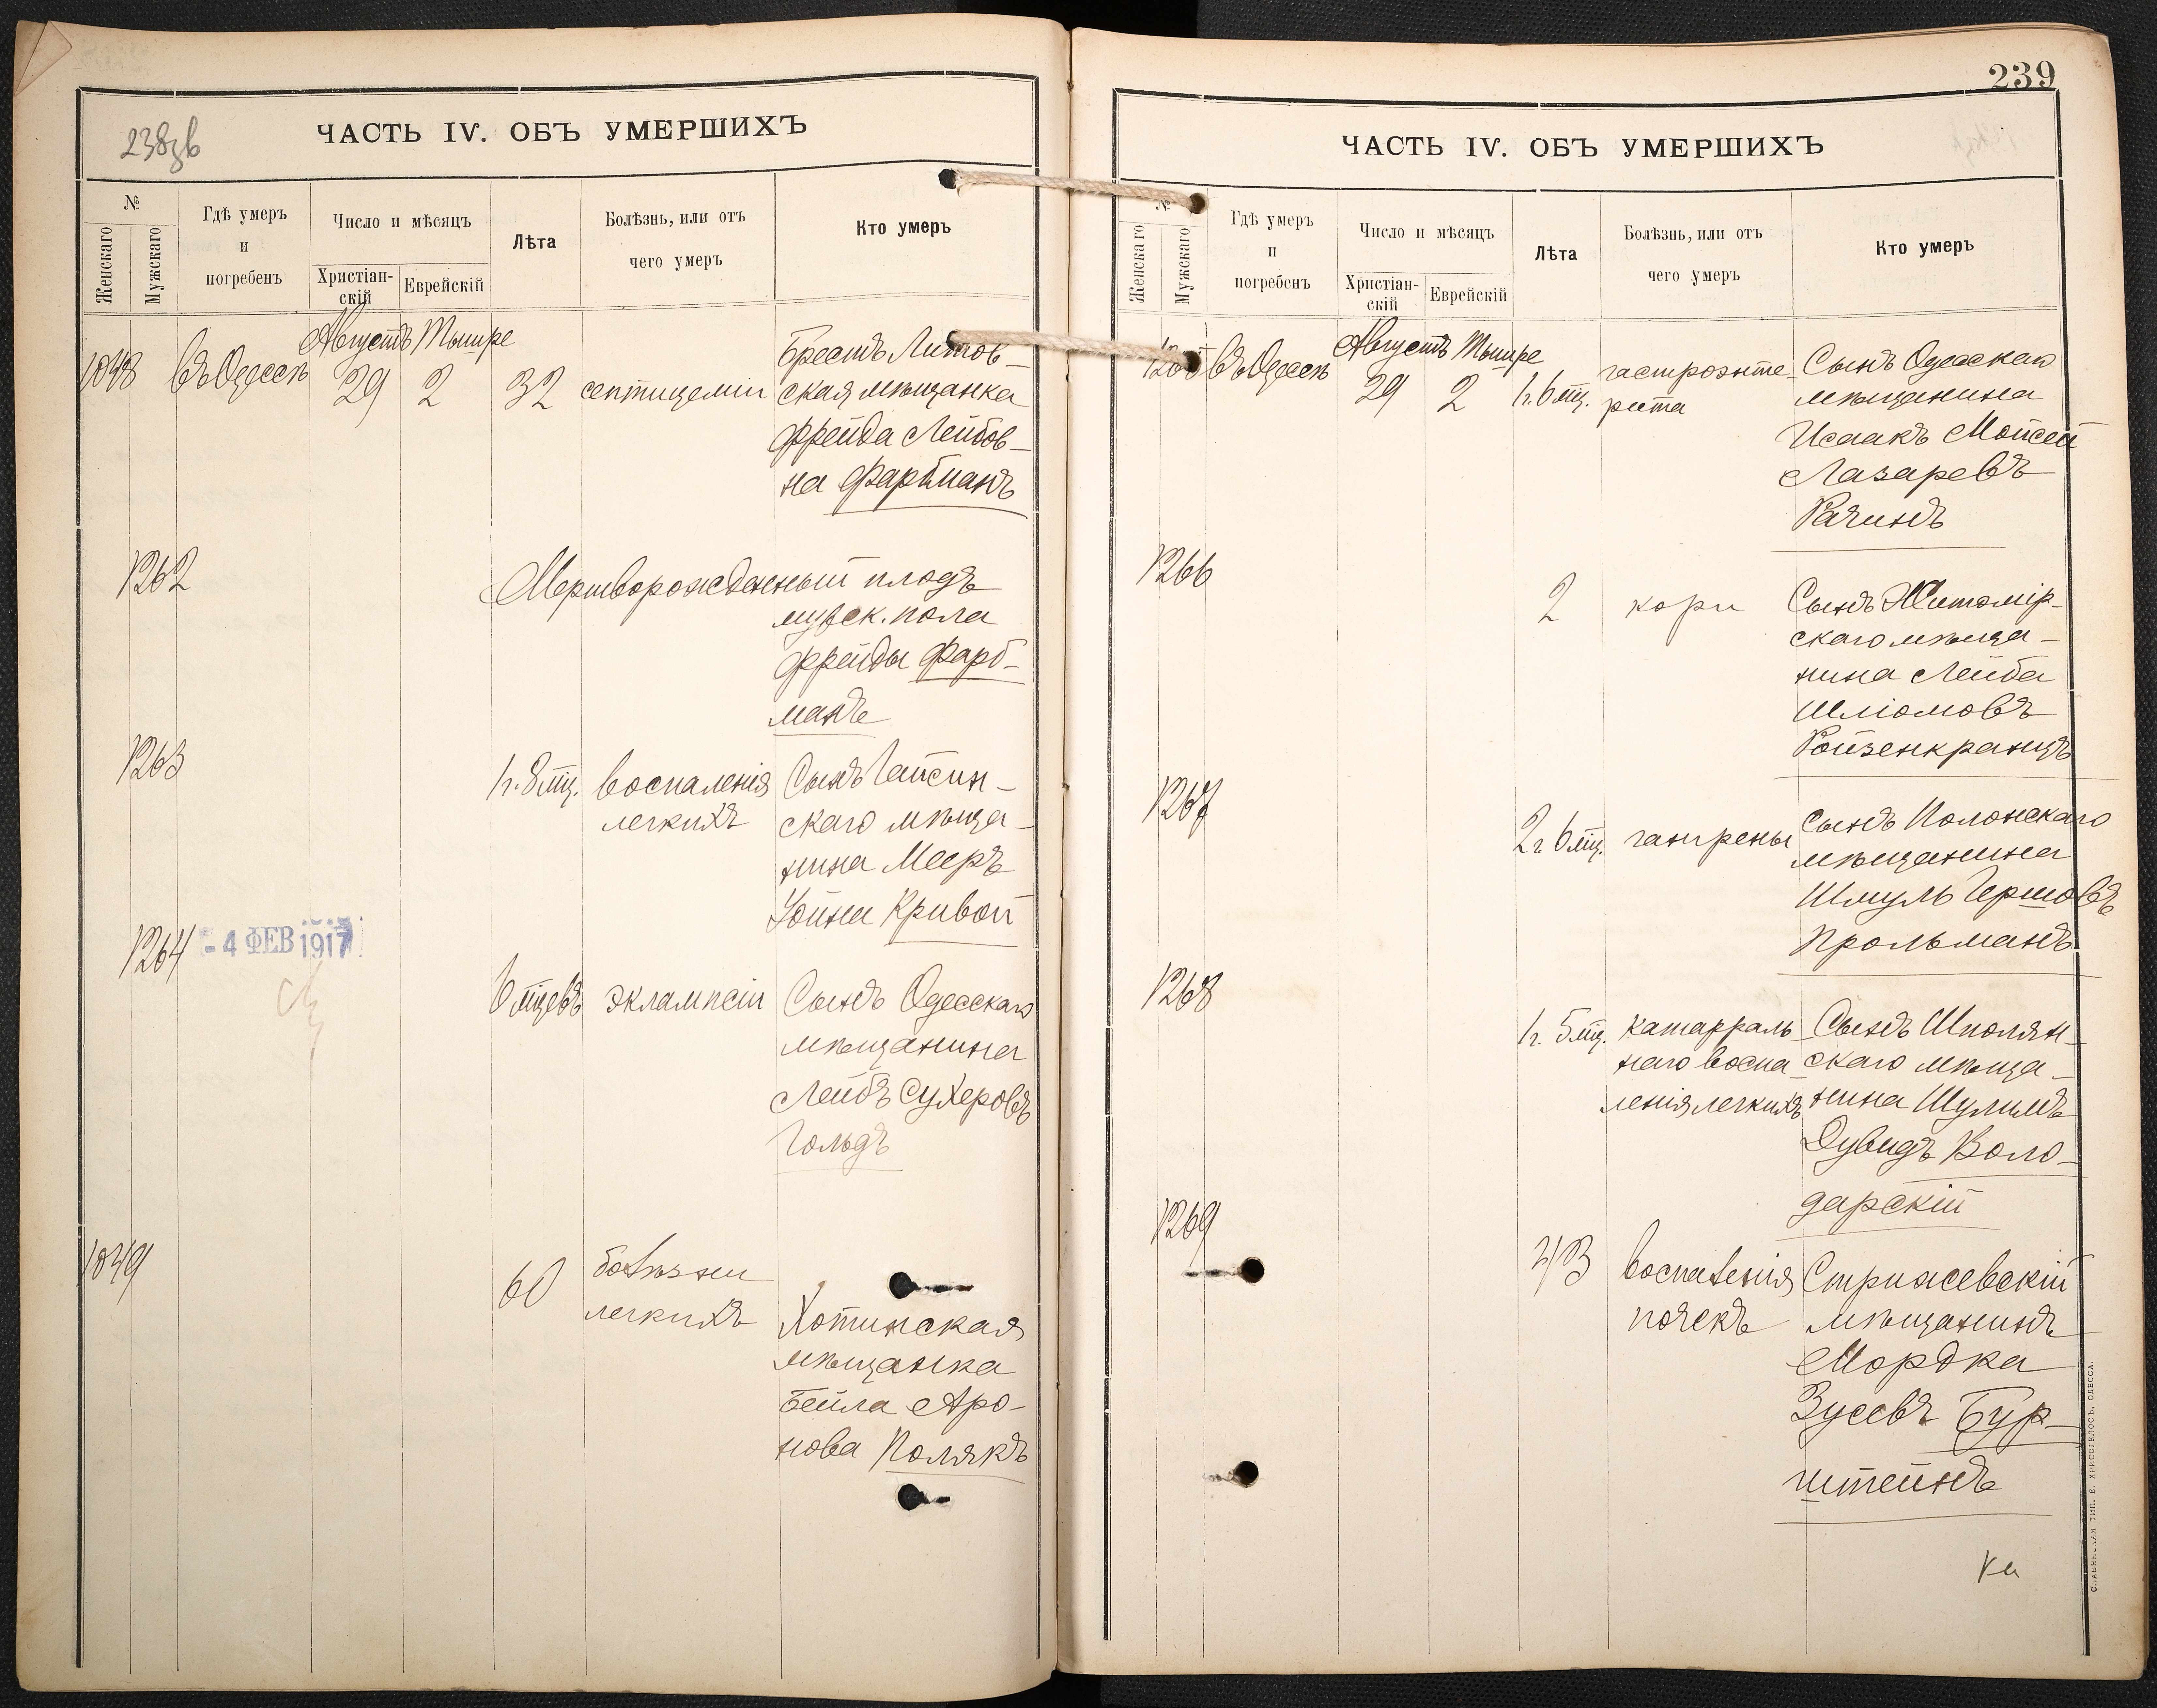 238зв
ЧАСТЬ IV. ОБЪ УМЕРШИХЪ
№
Женскаго
Мужскаго
Гдѣ умеръ
и
погребенъ
Число и мѣсяцъ
Христіан-
скій
Еврейскій
Лѣта
Болѣзнь, или отъ
чего умеръ
Кто умеръ
Августъ Тышре
1048 въ Одессѣ 29 2 32 септицеміи
Брестъ Литов-
ская мѣщанка
Фрейда Лейбов-
на Фарбманъ
1262
Мертворожденный плодъ
мужск. пола
Фрейды Фарб-
манъ
1263
1 г. 8 мц. воспаленія
легкихъ
Сынъ Гайсин-
скаго мѣща-
нина Мееръ
Хойна Кривой
1264 - 4 ФЕВ 1917
6 мцевъ эклампсіи
Сынъ Одесскаго
мѣщанина
Лейбъ Сухеровъ
Гольдъ
1049
60 болѣзни
легкихъ
Хотинская
мѣщанка
Бейла Аро-
нова Полякъ
239
ЧАСТЬ IV. ОБЪ УМЕРШИХЪ
№
Женскаго
Мужскаго
Гдѣ умеръ
и
погребенъ
Число и мѣсяцъ
Христіан-
скій
Еврейскій
Лѣта
Болѣзнь, или отъ
чего умеръ
Кто умеръ
Августъ Тышре
1265 въ Одессѣ 29 2 1 г. 6 мц. гастроэнте-
рита
Сынъ Одесскаго
мѣщанина
Исаакъ Мойсей
Лазаревъ
Рагинъ
1266
2 кори
Сынъ Житомір-
скаго мѣща-
нина Лейба
Шліомовъ
Ройзенкранцъ
1267
2 г. 6 мц. гангрены
Сынъ Полонскаго
мѣщанина
Шмуль Гершовъ
Прольманъ
1268
1 г. 5 мц. катарраль-
наго воспа-
ленія легкихъ
Сынъ Шполян-
скаго мѣща-
нина Шулимъ
Дувидъ Воло-
дарскій
1269
43 воспаленія
почекъ
Стрижевскій
мѣщанинъ
Мордка
Зусевъ Бур-
штейнъ
СЛАВЯНСКАЯ ТИП. Е. ХРИСОГЕЛОСЪ, ОДЕССА.